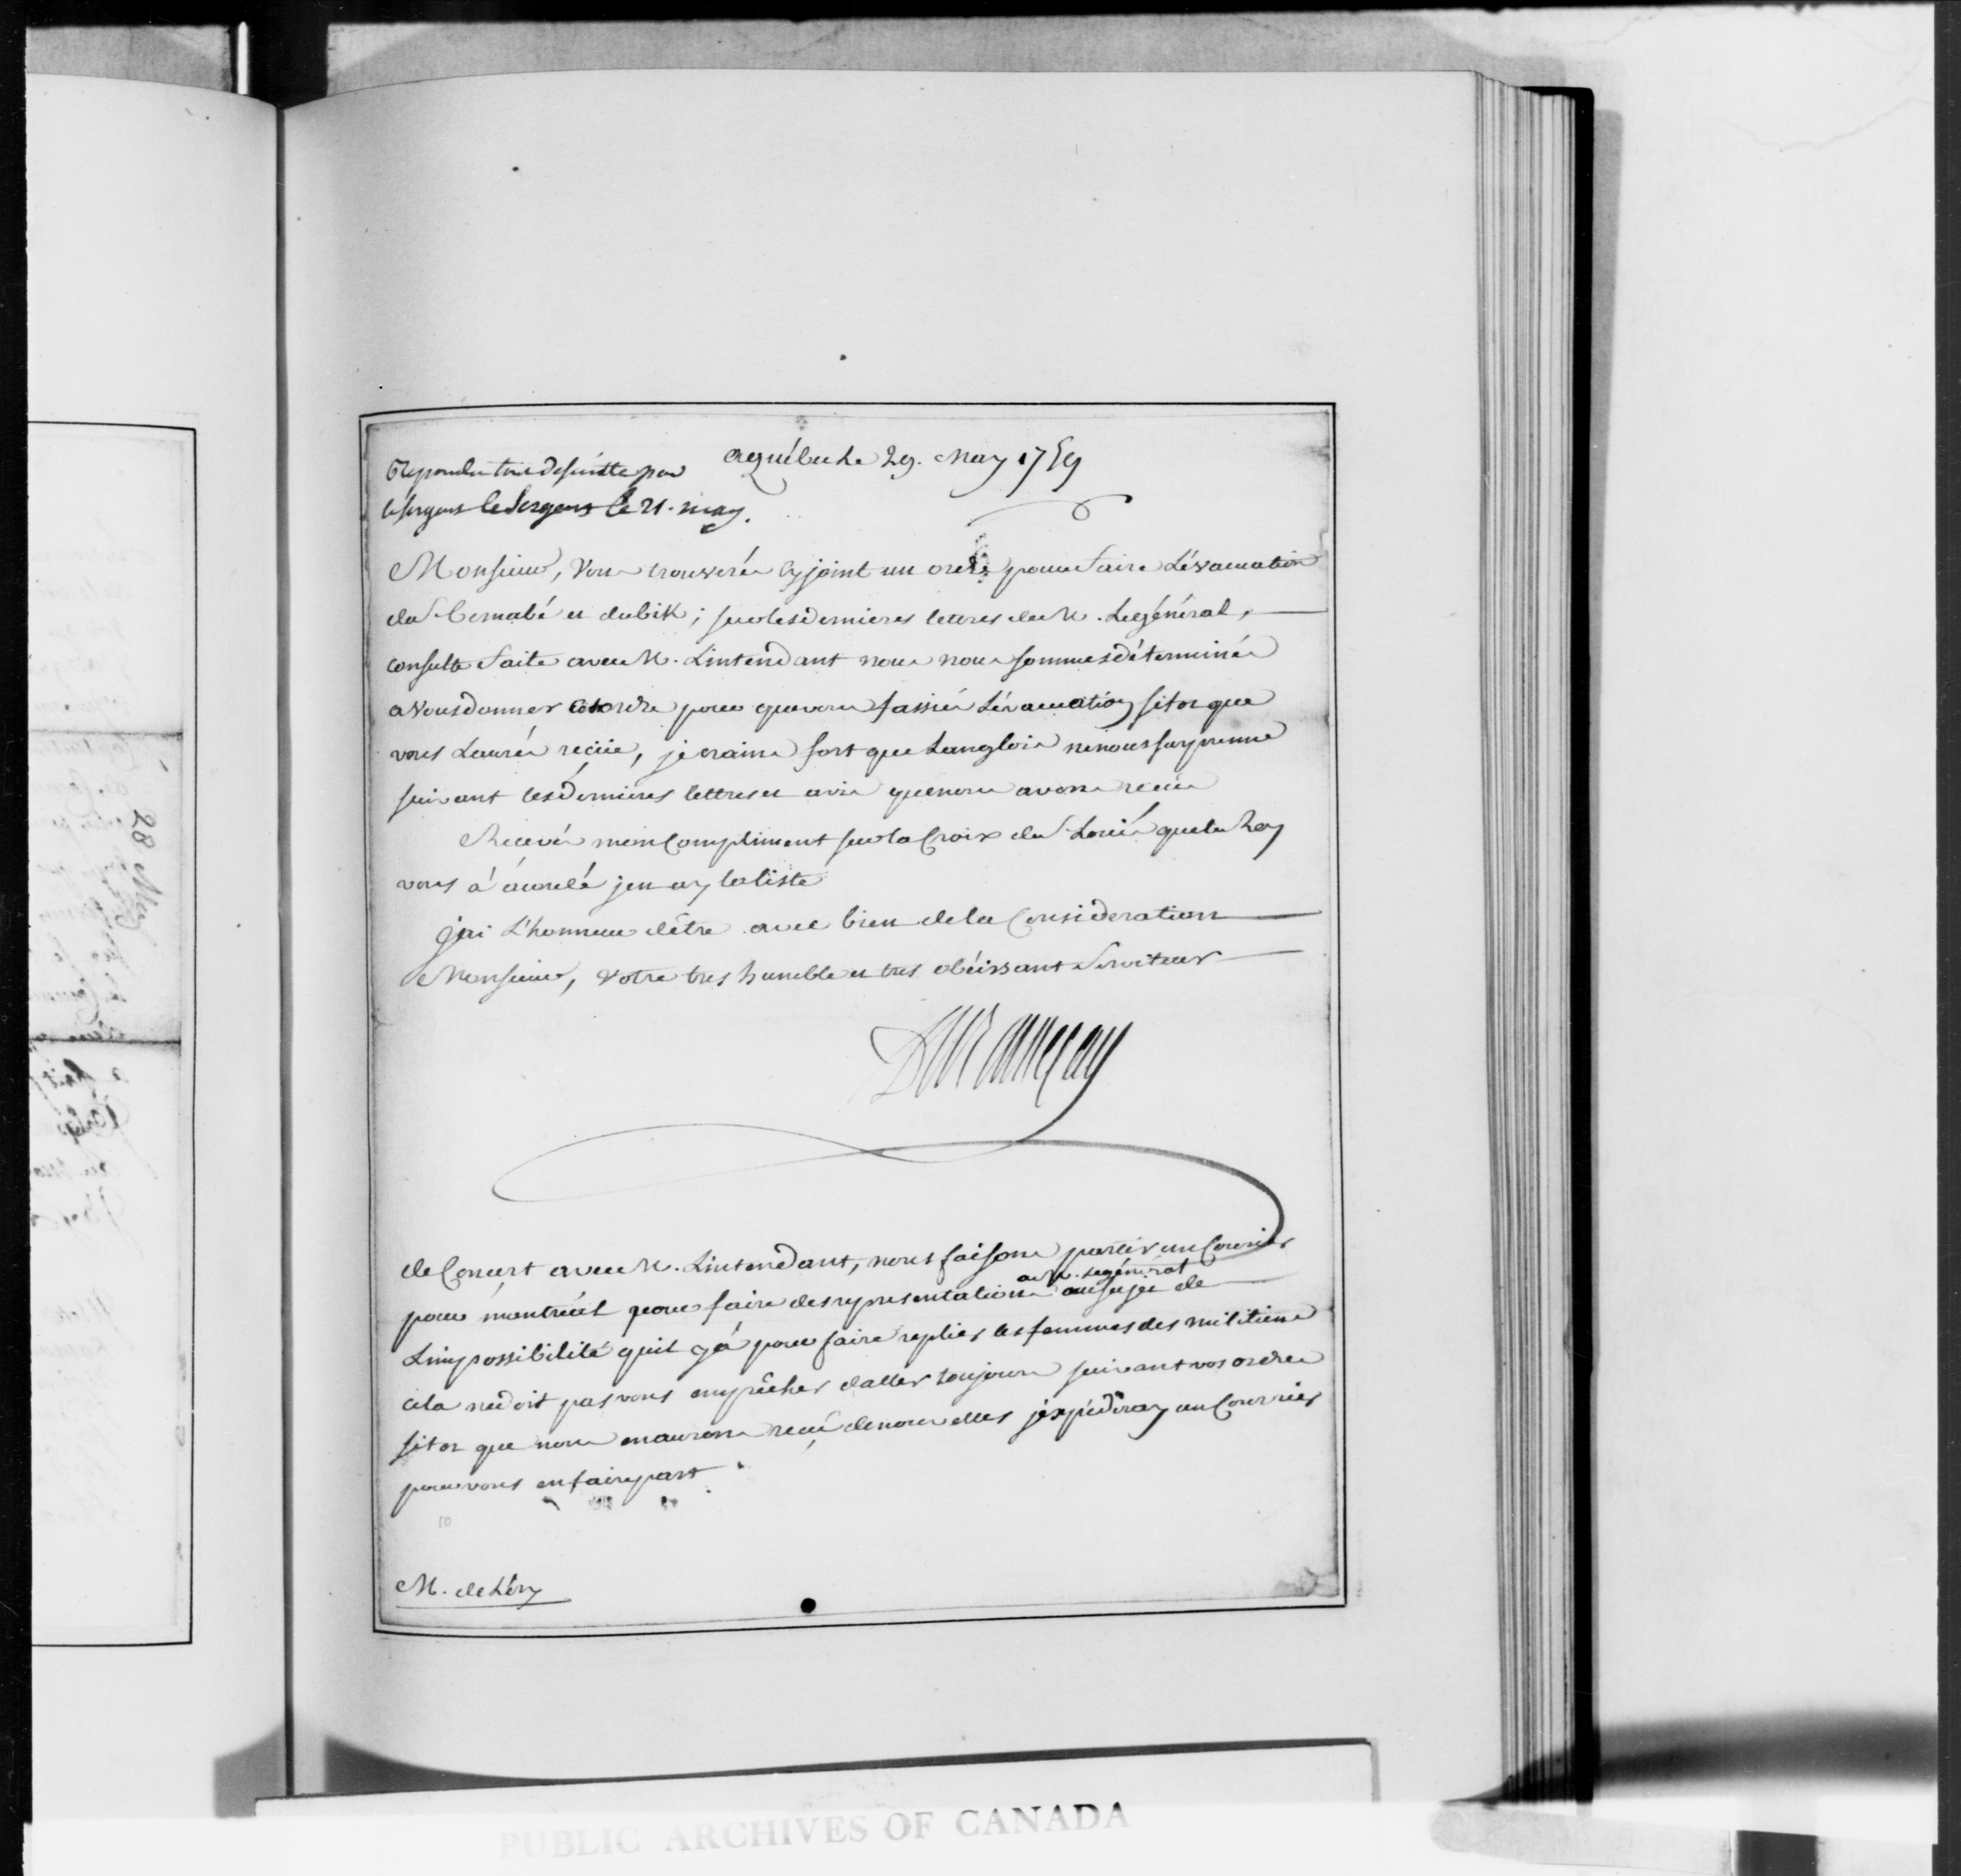 Repondu tout de suitte par
le sergens le sergens le 21. may.
a québec le 29. May 1759
Monsieur, Vous trouverés cy joint un ordre pour faire L'évacuation
du St bernabé et du bik; sur les dernieres lettres de M. Le général,
consulte faite avec M. Lintendant nous nous sommes déterminés
a vous donner cet ordre pour que vous fassiés Lévacuation sitot que
vous Laurés reçüe, je crains fort que Langlois ne nous surprenne
suivant les dernieres lettres et avis que nous avons reçus
Recevés mon Compliment sur la Croix de St Louis que le Roy
vous á acordé jen ay la liste
jai L'honneur dêtre avec bien de la Consideration
Monsieur, votre tres humble et tres obéissant Serviteur
DeRamezay
de Concert avec M. Lintendant, nous faisons partir un Courier
pour montreál pour faire des representations a M. Le général au sujet de
Limpossibilité quil y á pour faire replier les femmes des militiens
cela ne doit pas vous empêcher daller toujours suivant vos ordres
sitot que nous en aurons reçu de nouvelles jexpédiray un Courrier
pour vous en faire part.
M. de Léry
28 May
PUBLIC ARCHIVES OF CANADA